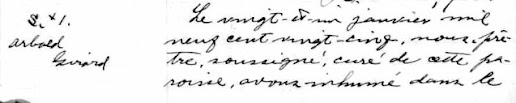 S. + 1.
Girard
Le vingt-et-un janvier mil
neuf cent vingt-cinq, nous, prê-
tre, soussigné, curé de cette pa-
roisse, avons inhumé dans le